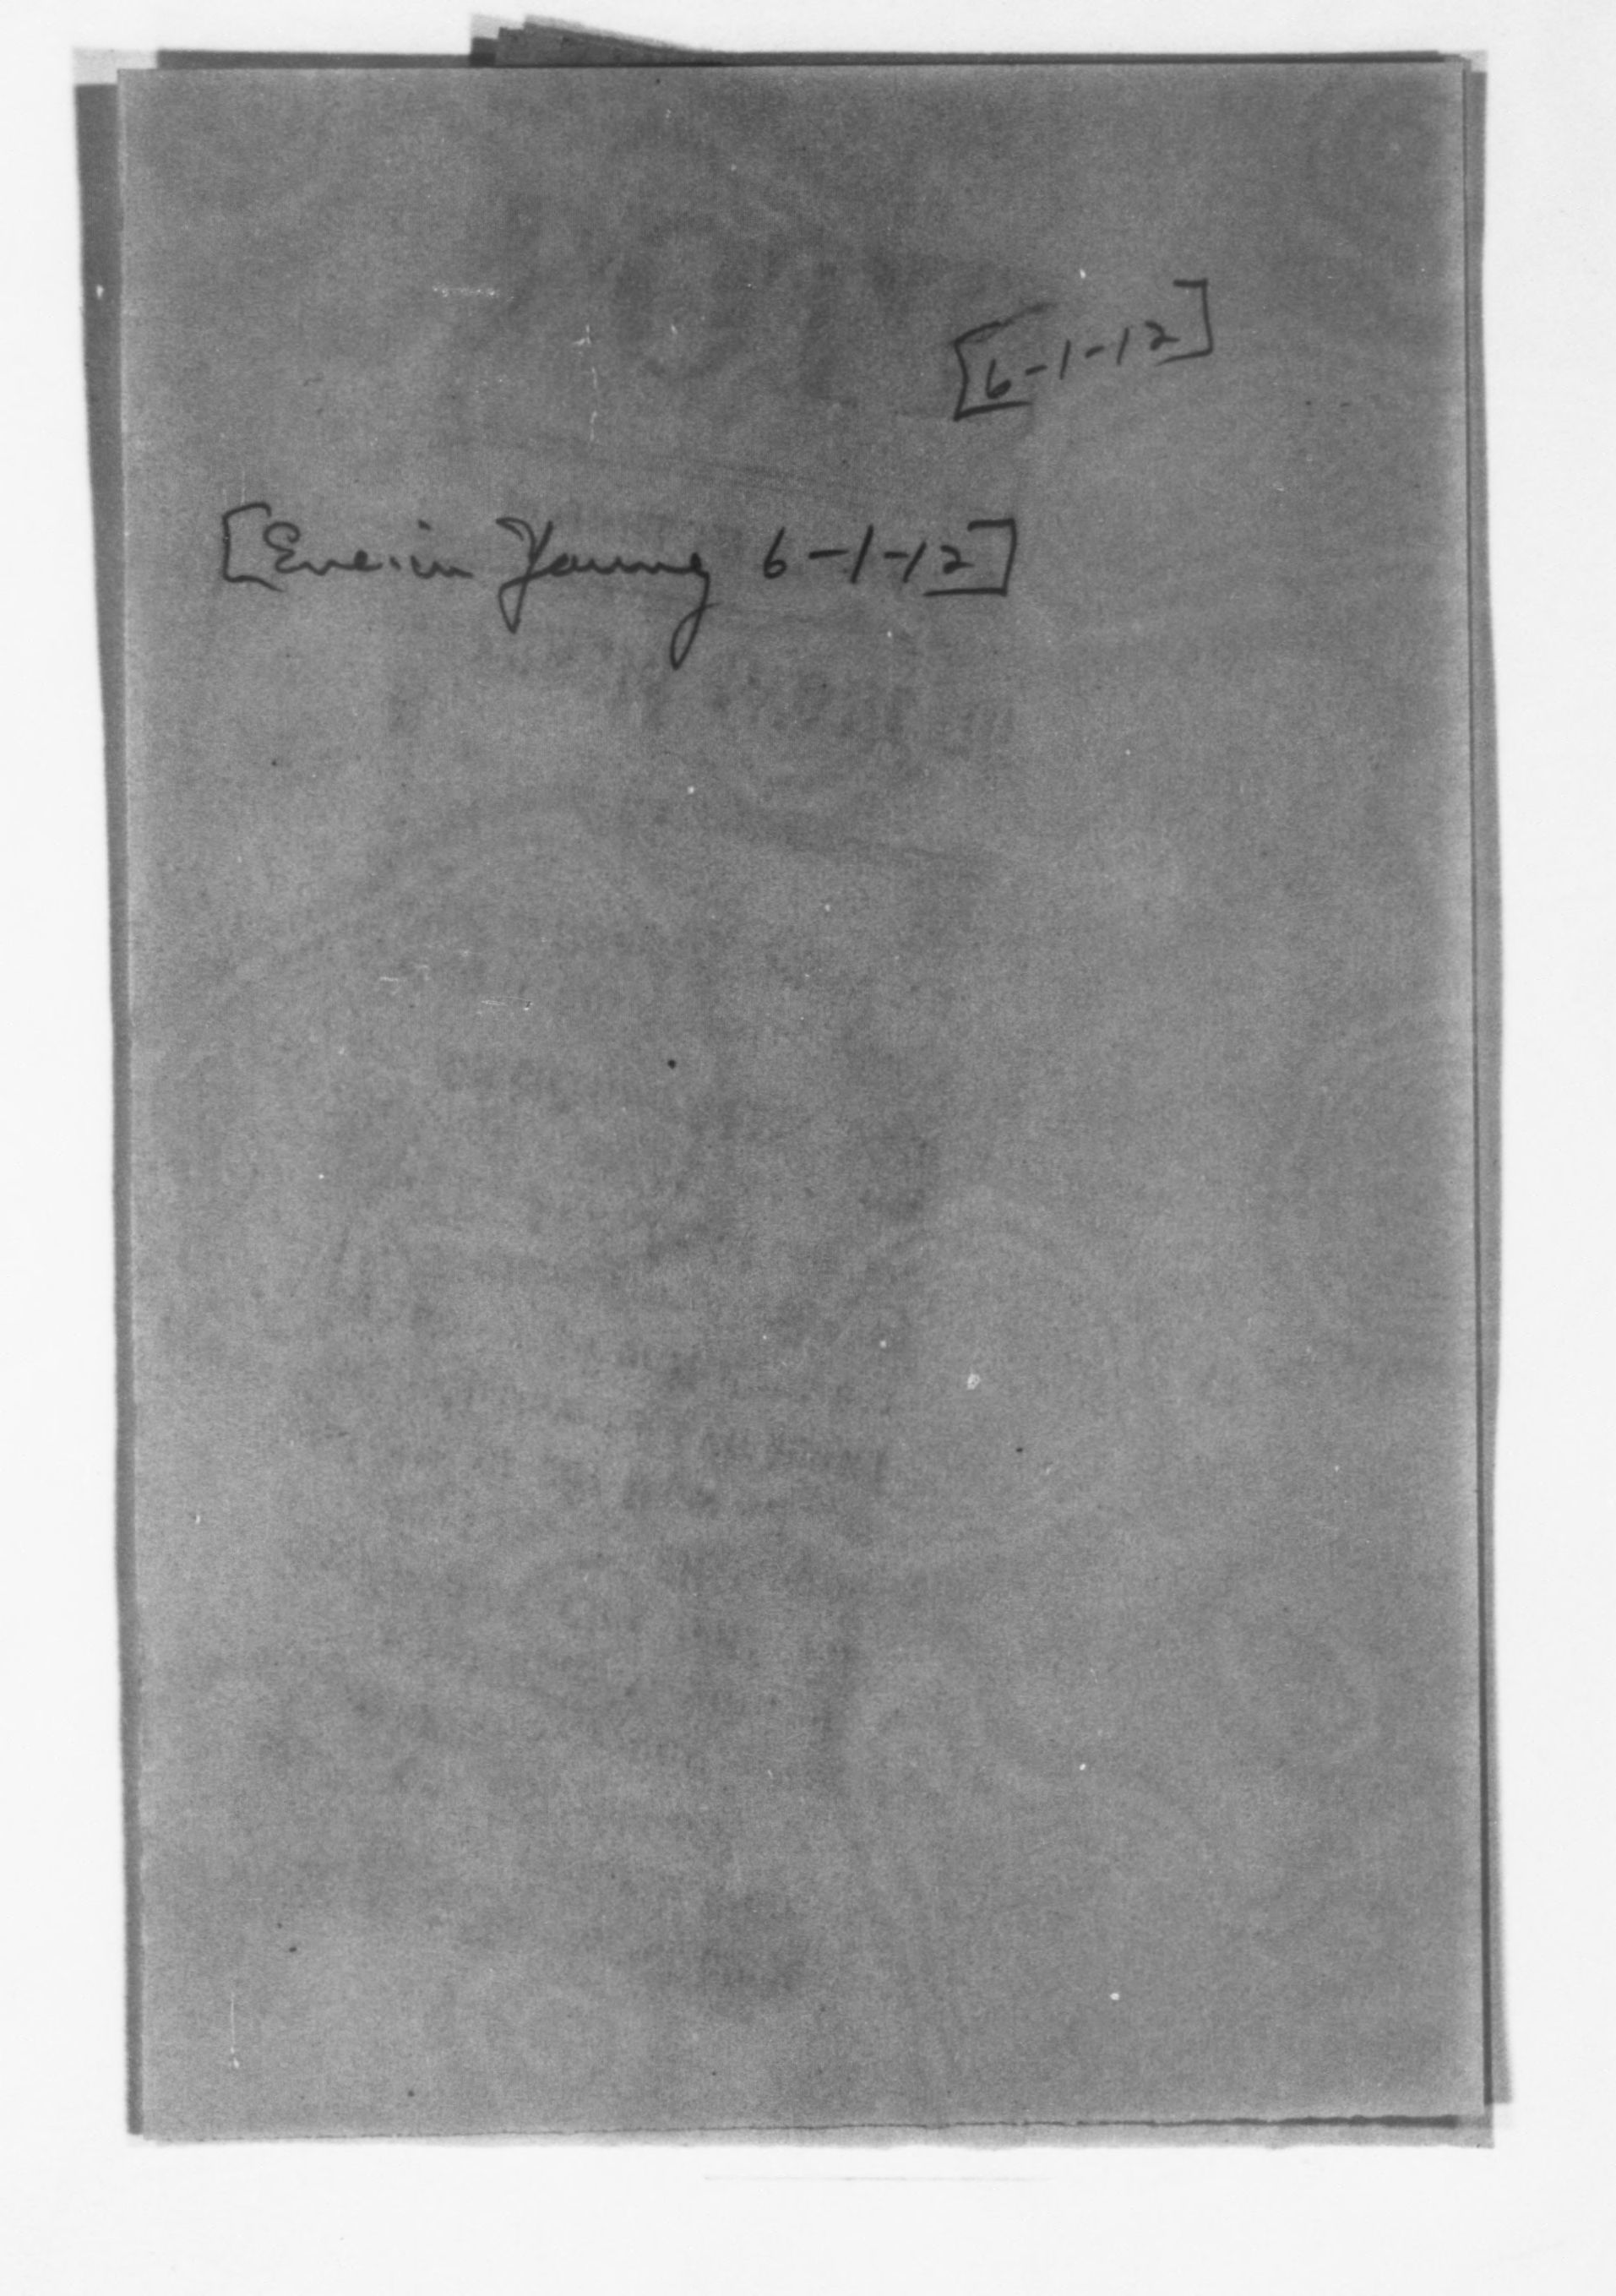 [6-1-12]
[Young 6-1-12]